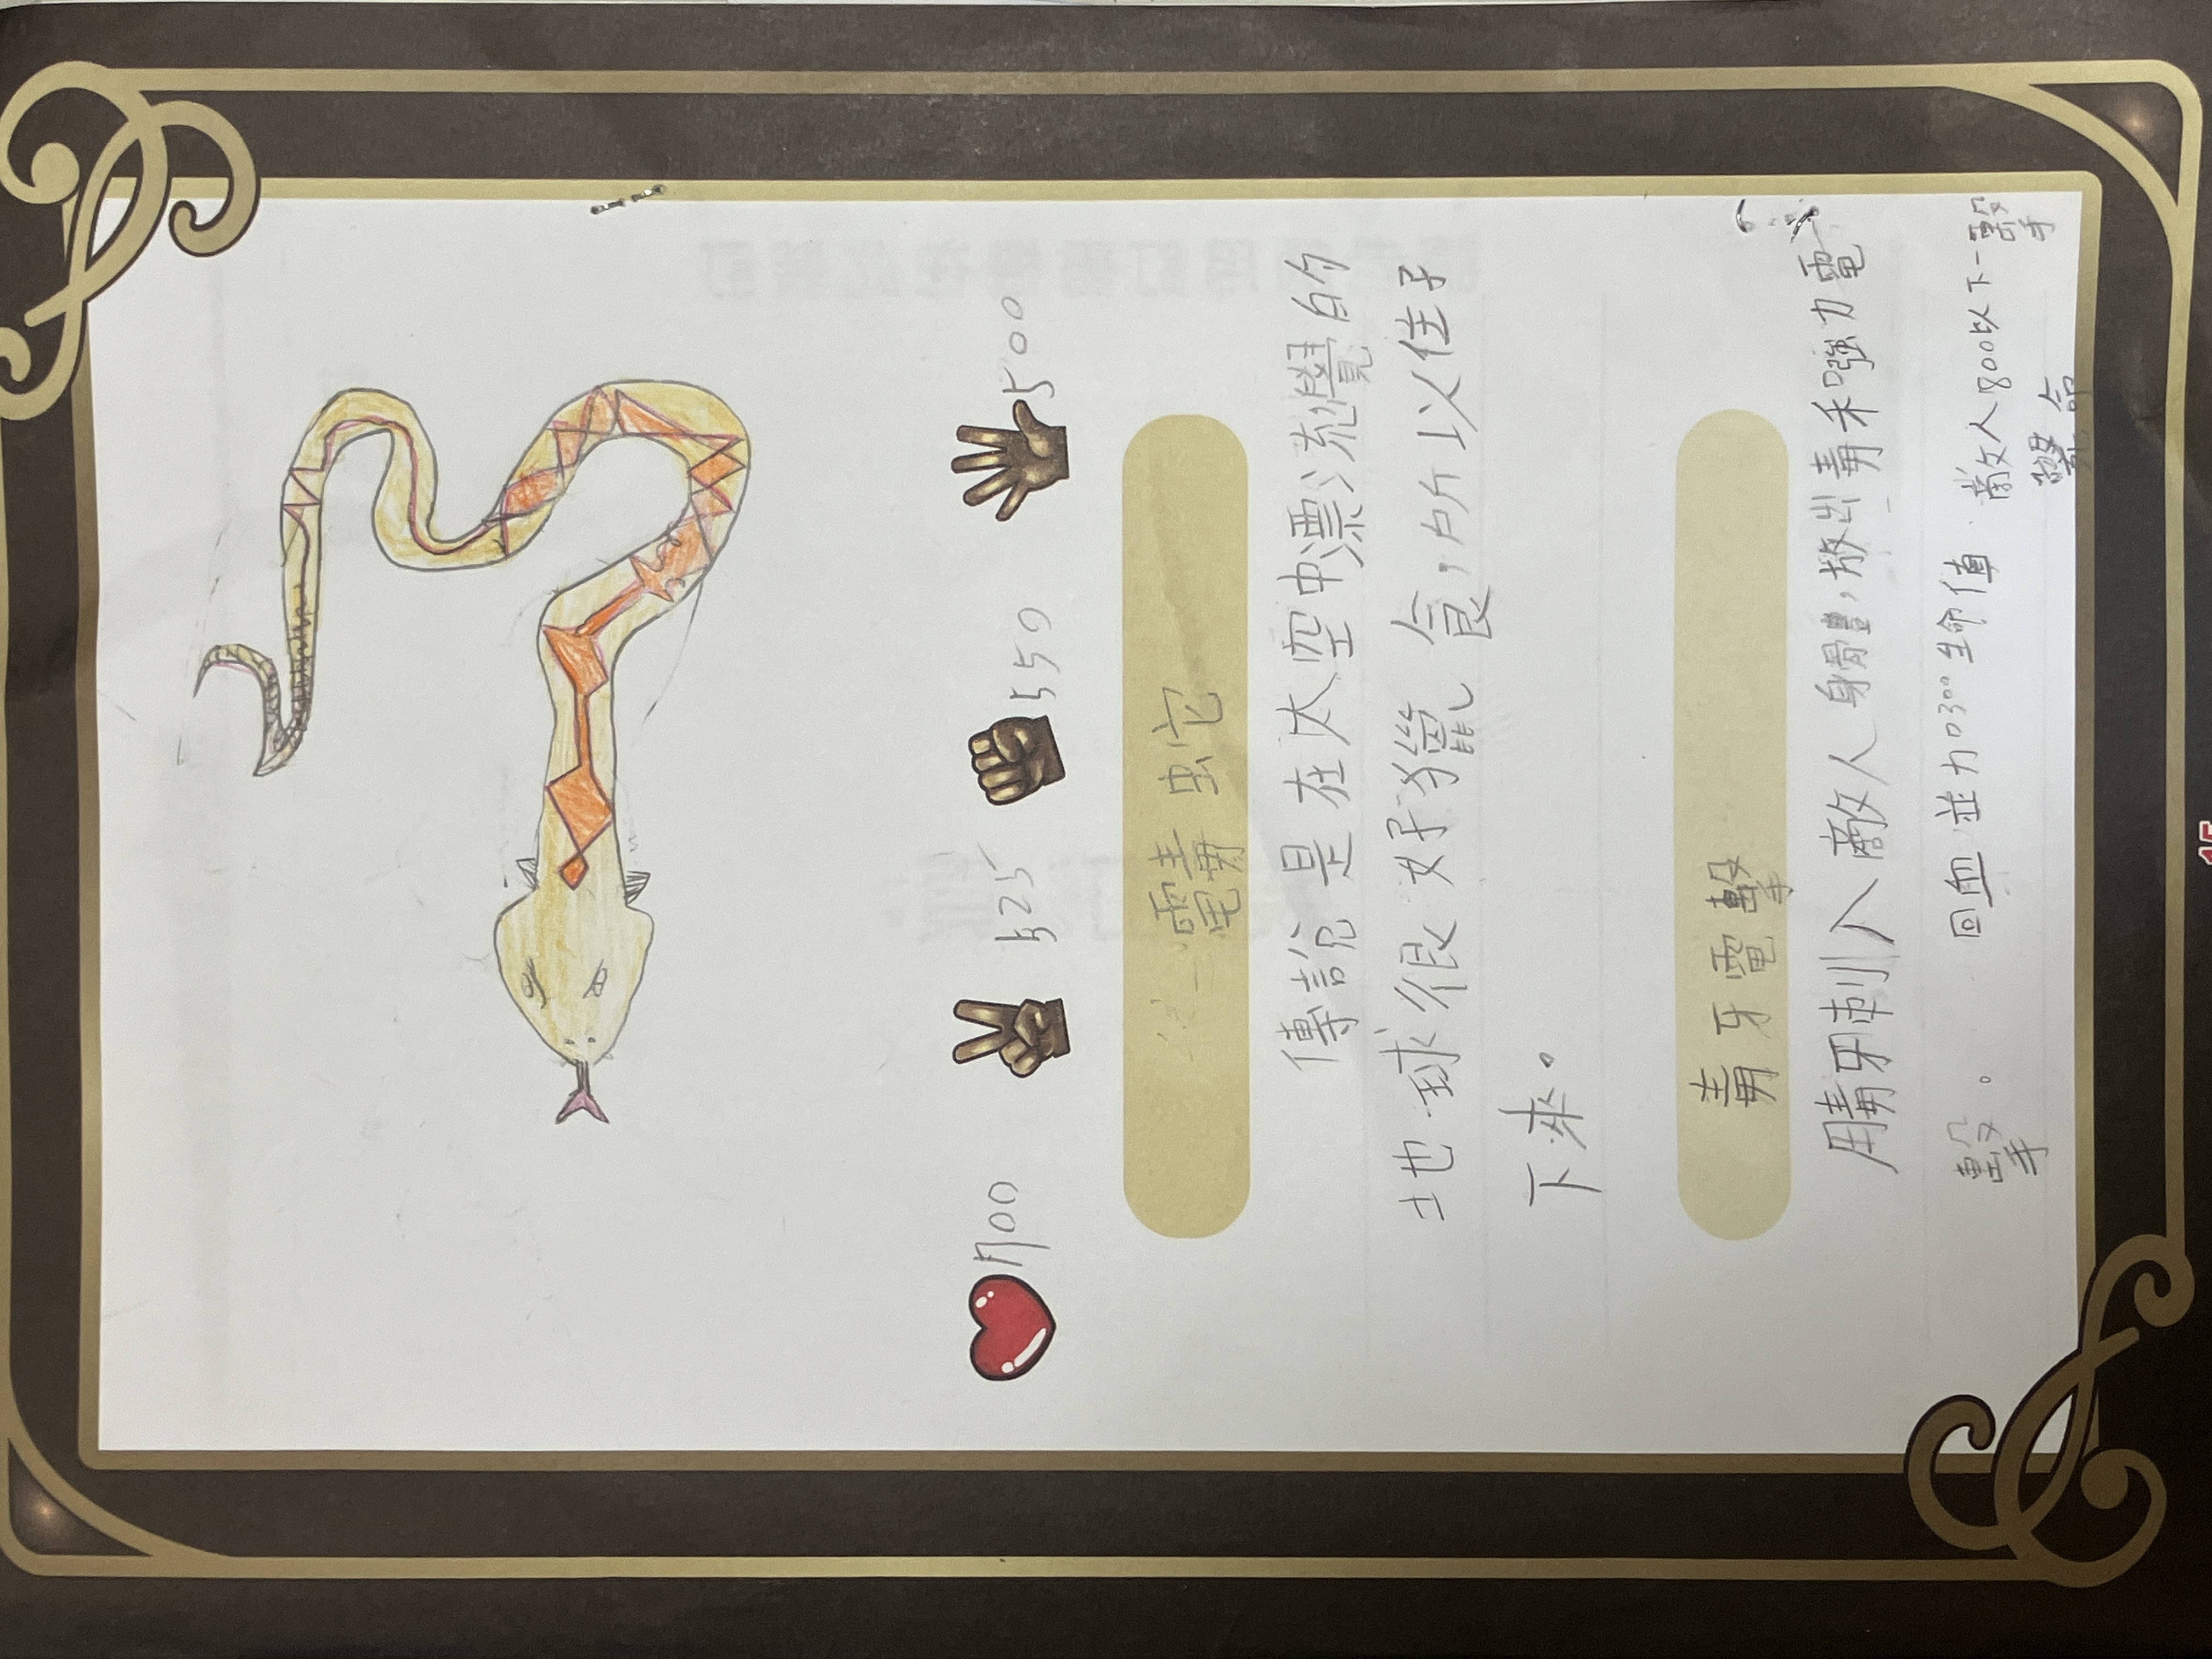 700 525 550 500
電毒蛇
傳說是在太空中漂流覺的
地球很好獵食,所以住子
下來。
毒牙電擊
用毒牙刺入敵人身體,放出毒和強力電
擊。 回血並加300生命值 敵人800以下一擊
命